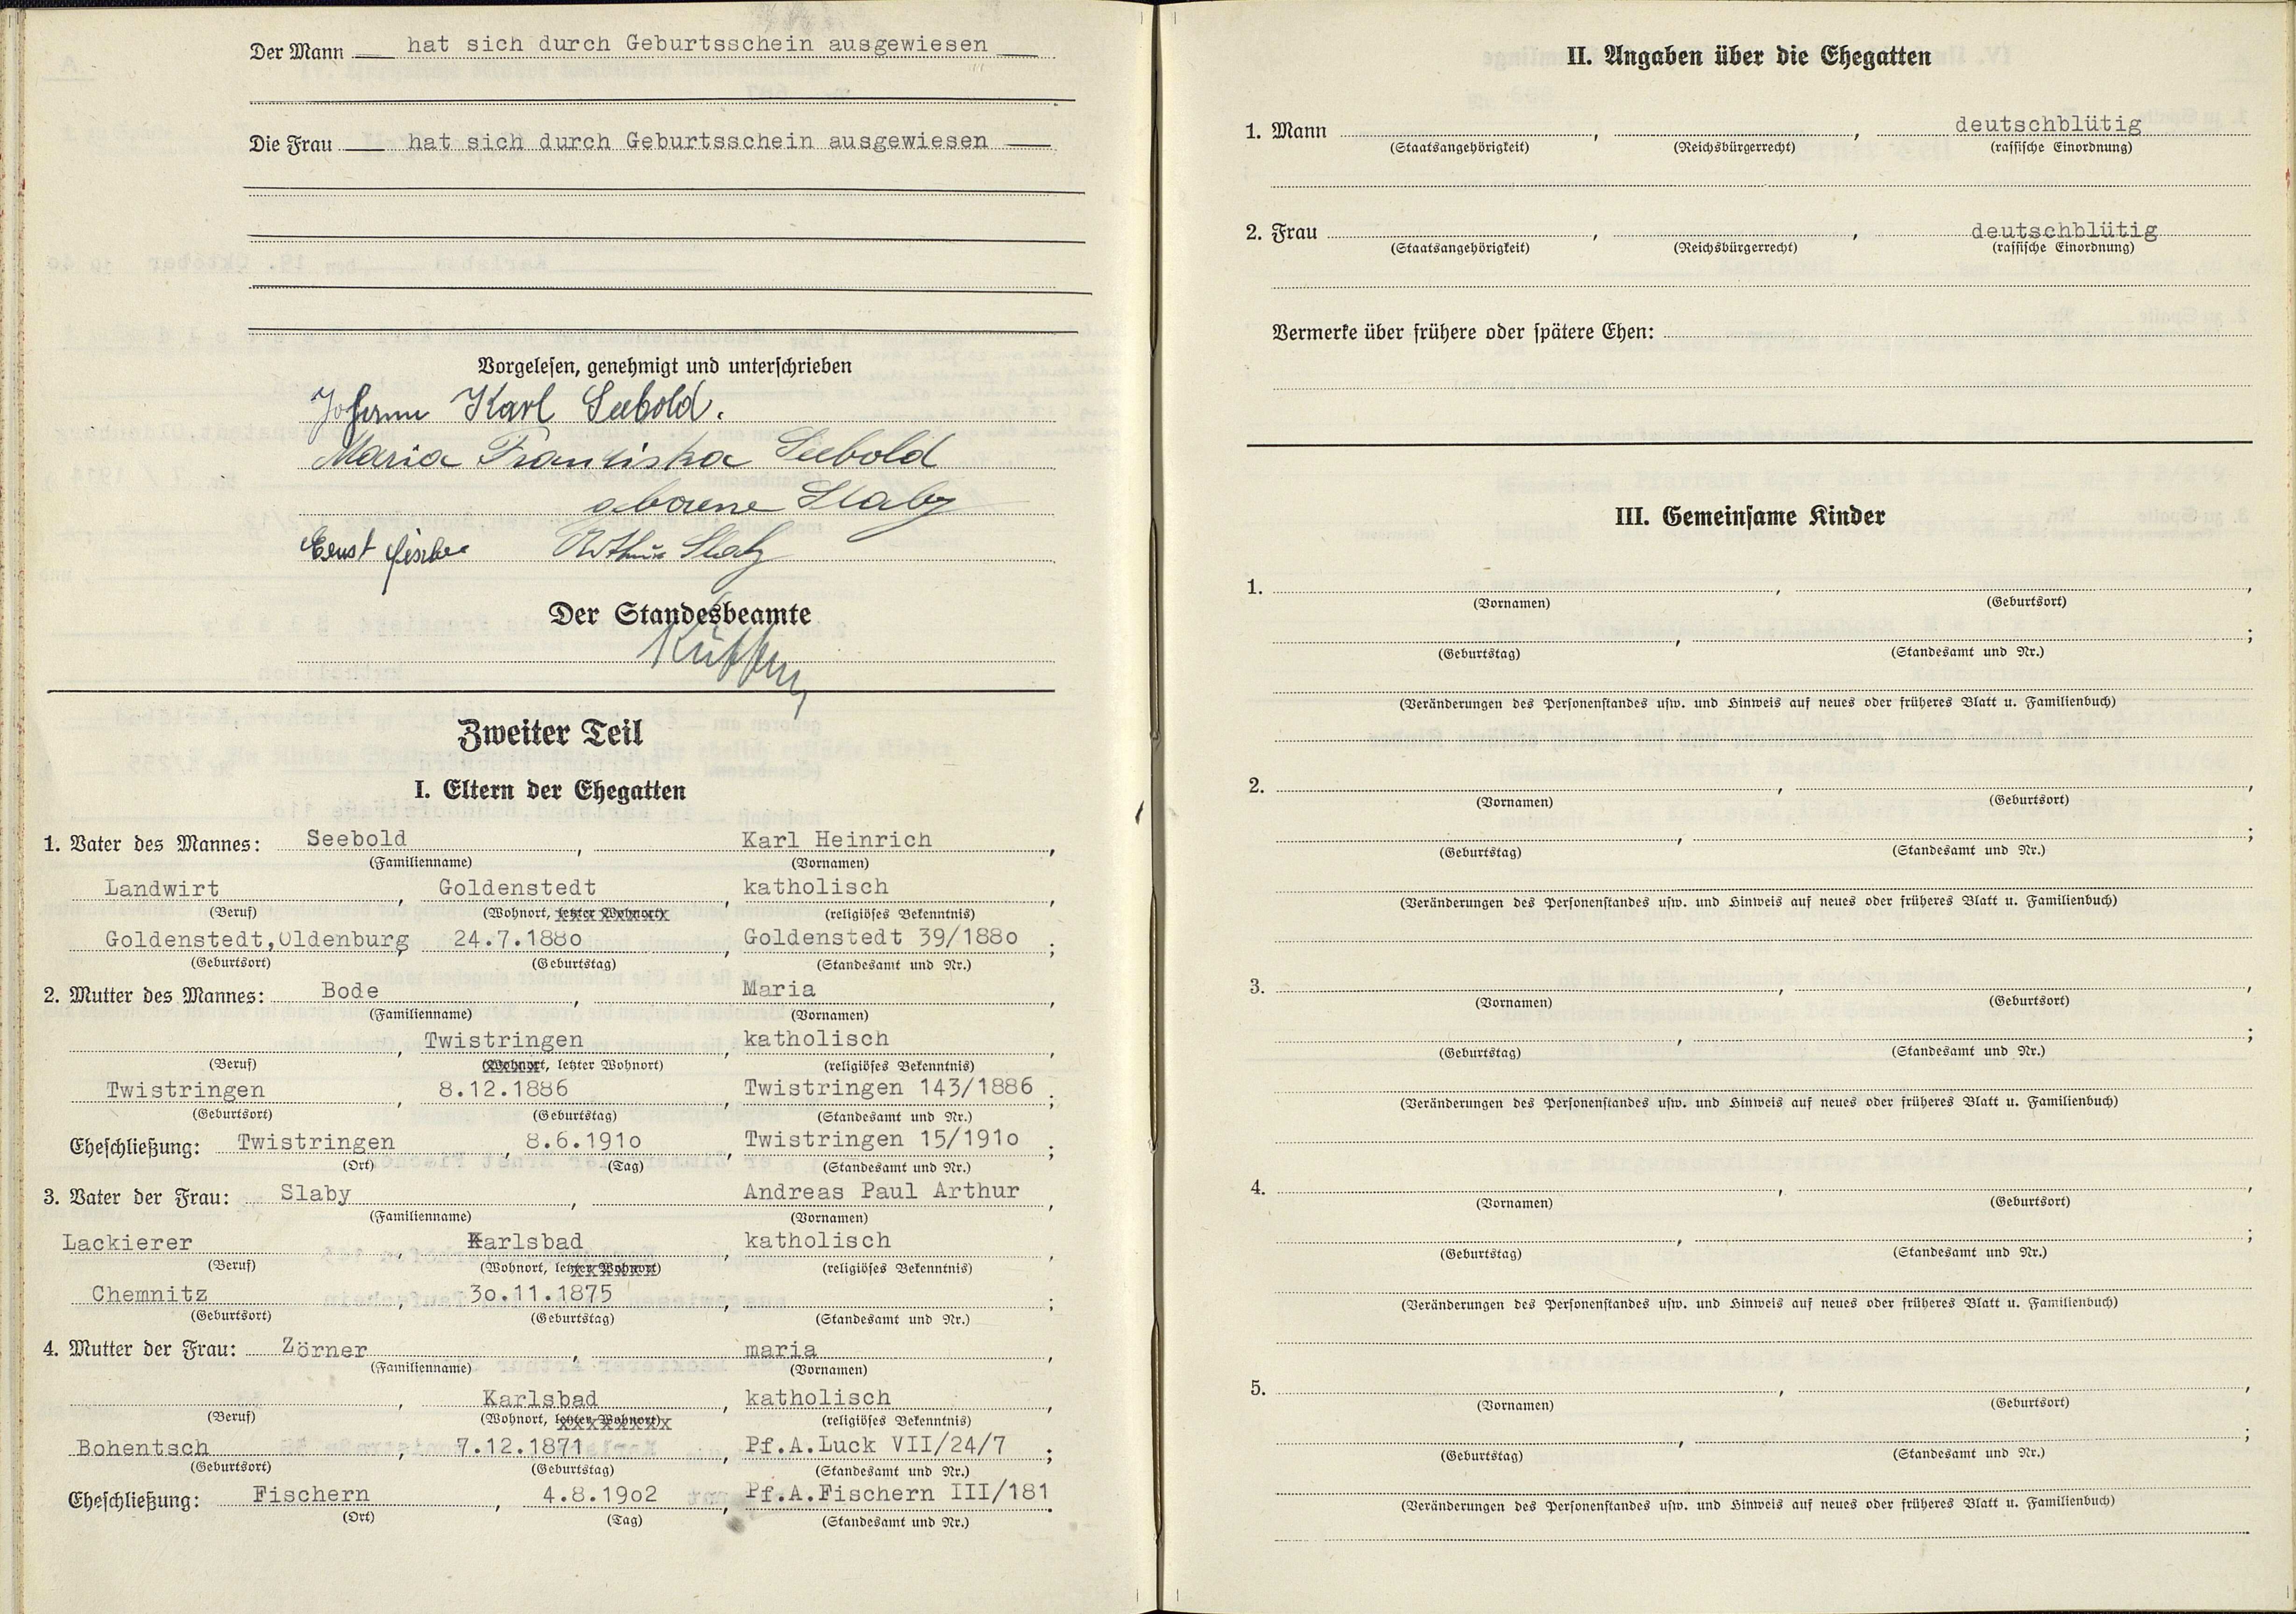 Der Mann hat sich durch Geburtsschein ausgewiesen
Die Frau hat sich durch Geburtsschein ausgewiesen
Vorgelesen, genehmigt und unterschrieben
Johann Karl Seebold.
Maria Franziska Seebold
geborene Slaby
Ernst Arthur Slaby
Der Standesbeamte
Zweiter Teil
I. Eltern der Ehegatten
1. Vater des Mannes: Seebold, Karl Heinrich,
(Familienname) (Vornamen)
Landwirt, Goldenstedt, katholisch,
(Beruf) (Wohnort, letzter Wohnort) (religiöses Bekenntnis)
Goldenstedt,Oldenburg, 24.7.188o, Goldenstedt 39/188o;
(Geburtsort) (Geburtstag) (Standesamt und Nr.)
2. Mutter des Mannes: Bode, Maria,
(Familienname) (Vornamen)
, Twistringen, katholisch,
(Beruf) (Wohnort, letzter Wohnort) (religiöses Bekenntnis)
Twistringen, 8.12.1886, Twistringen 143/1886;
(Geburtsort) (Geburtstag) (Standesamt und Nr.)
Eheschließung: Twistringen, 8.6.191o, Twistringen 15/191o;
(Ort) (Tag) (Standesamt und Nr.)
3. Vater der Frau: Slaby, Andreas Paul Arthur,
(Familienname) (Vornamen)
Lackierer, Karlsbad, katholisch,
(Beruf) (Wohnort, letzter Wohnort) (religiöses Bekenntnis)
Chemnitz, 3o.11.1875, ;
(Geburtsort) (Geburtstag) (Standesamt und Nr.)
4. Mutter der Frau: Zörner, maria,
(Familienname) (Vornamen)
, Karlsbad, katholisch,
(Beruf) (Wohnort, letzter Wohnort) (religiöses Bekenntnis)
Bohentsch, 7.12.1871, Pf.A.Luck VII/24/7;
(Geburtsort) (Geburtstag) (Standesamt und Nr.)
Eheschließung: Fischern, 4.8.19o2, Pf.A.Fischern III/181.
(Ort) (Tag) (Standesamt und Nr.)
II. Angaben über die Ehegatten
1. Mann , , deutschblütig
(Staatsangehörigkeit) (Reichsbürgerrecht) (rassische Einordnung)
2. Frau , , deutschblütig
(Staatsangehörigkeit) (Reichsbürgerrecht) (rassische Einordnung)
Vermerke über frühere oder spätere Ehen:
III. Gemeinsame Kinder
1. , ,
(Vornamen) (Geburtsort)
, ;
(Geburtstag) (Standesamt und Nr.)
(Veränderungen des Personenstandes usw. und Hinweis auf neues oder früheres Blatt u. Familienbuch)
2. , ,
(Vornamen) (Geburtsort)
, ;
(Geburtstag) (Standesamt und Nr.)
(Veränderungen des Personenstandes usw. und Hinweis auf neues oder früheres Blatt u. Familienbuch)
3. , ,
(Vornamen) (Geburtsort)
, ;
(Geburtstag) (Standesamt und Nr.)
(Veränderungen des Personenstandes usw. und Hinweis auf neues oder früheres Blatt u. Familienbuch)
4. , ,
(Vornamen) (Geburtsort)
, ;
(Geburtstag) (Standesamt und Nr.)
(Veränderungen des Personenstandes usw. und Hinweis auf neues oder früheres Blatt u. Familienbuch)
5. , ,
(Vornamen) (Geburtsort)
, ;
(Geburtstag) (Standesamt und Nr.)
(Veränderungen des Personenstandes usw. und Hinweis auf neues oder früheres Blatt u. Familienbuch)